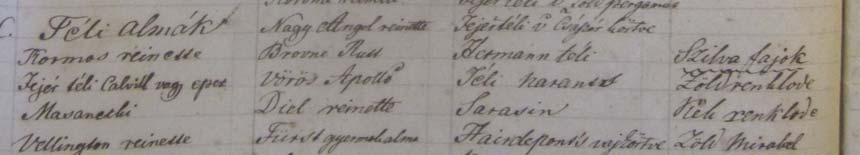 C. Téli almák Nagy Angol reinette Fejér téli v Császár körtve
Kormos reinesse Brovne Russ Hermann téli Szilva fajok
Fejér téli Calvill vagy eper Vörös Apolló Téli narants Zöld renklode
Masanczki Diel reinette Sarasin Kék renklode
Vellington reinesse Fürst gyermek alma Hairdeponts vajkörtve Zöld Mirabel